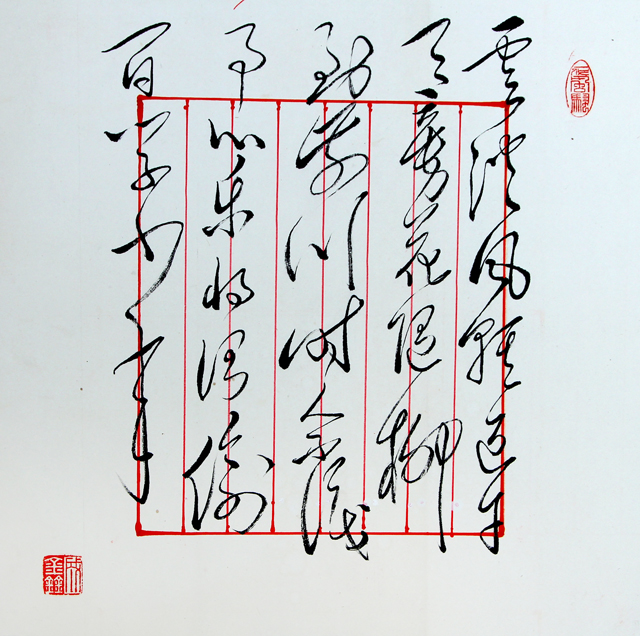 雲淡风轻近午
天傍花随柳
过前川时人不识
予心乐将谓偷
闲学少年